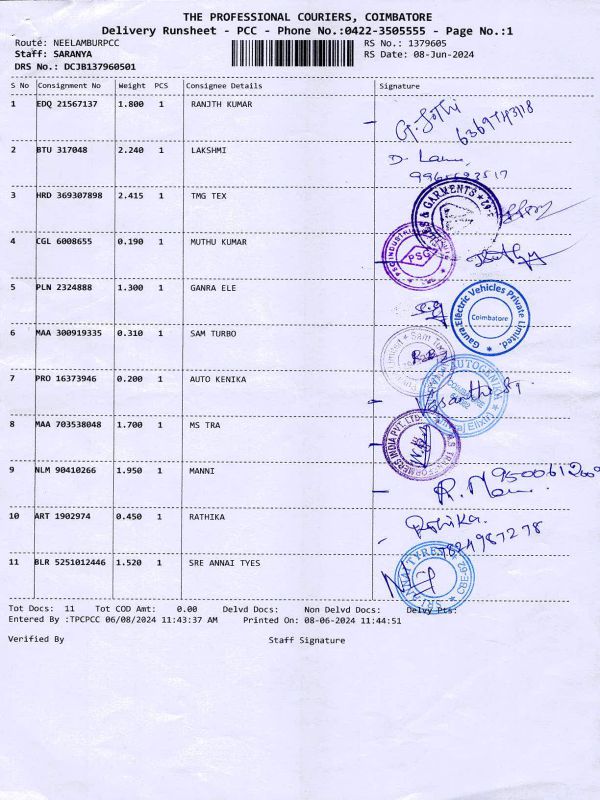 THE PROFESSIONAL COURIERS, COIMBATORE
Delivery Runsheet - PCC - Phone No.:0422-3505555 - Page No.:1
Route: NEELAMBURPCC RS No.: 1379605
Staff: SARANYA RS Date: 08-Jun-2024
DRS No.: DCJB137960501
S No Consignment No Weight PCS Consignee Details Signature
1 EDQ 21567137 1.800 1 RANJTH KUMAR
G. Jothi
2 BTU 317048 2.240 1 LAKSHMI
3 HRD 369307898 2.415 1 TMG TEX
& GARMENTS
4 CGL 6008655 0.190 1 MUTHU KUMAR
PSG
5 PLN 2324888 1.300 1 GANRA ELE
Gaura Electric Vehicles Private Limited.
Coimbatore
6 MAA 300919335 0.310 1 SAM TURBO
7 PRO 16373946 0.200 1 AUTO KENIKA
8 MAA 703538048 1.700 1 MS TRA
9 NLM 90410266 1.950 1 MANNI
10 ART 1902974 0.450 1 RATHIKA
Rathika.
11 BLR 5251012446 1.520 1 SRE ANNAI TYES
SRI ANNAI TYRES
Tot Docs: 11 Tot COD Amt: 0.00 Delvd Docs: Non Delvd Docs: Delvy Pts:
Entered By :TPCPCC 06/08/2024 11:43:37 AM Printed On: 08-06-2024 11:44:51
Verified By Staff Signature